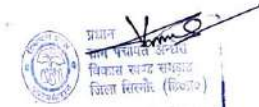 प्रधान
ग्राम पंचायत अन्धेरी
विकास खण्ड संगड़ाह
जिला सिरमौर (हि०प्र०)